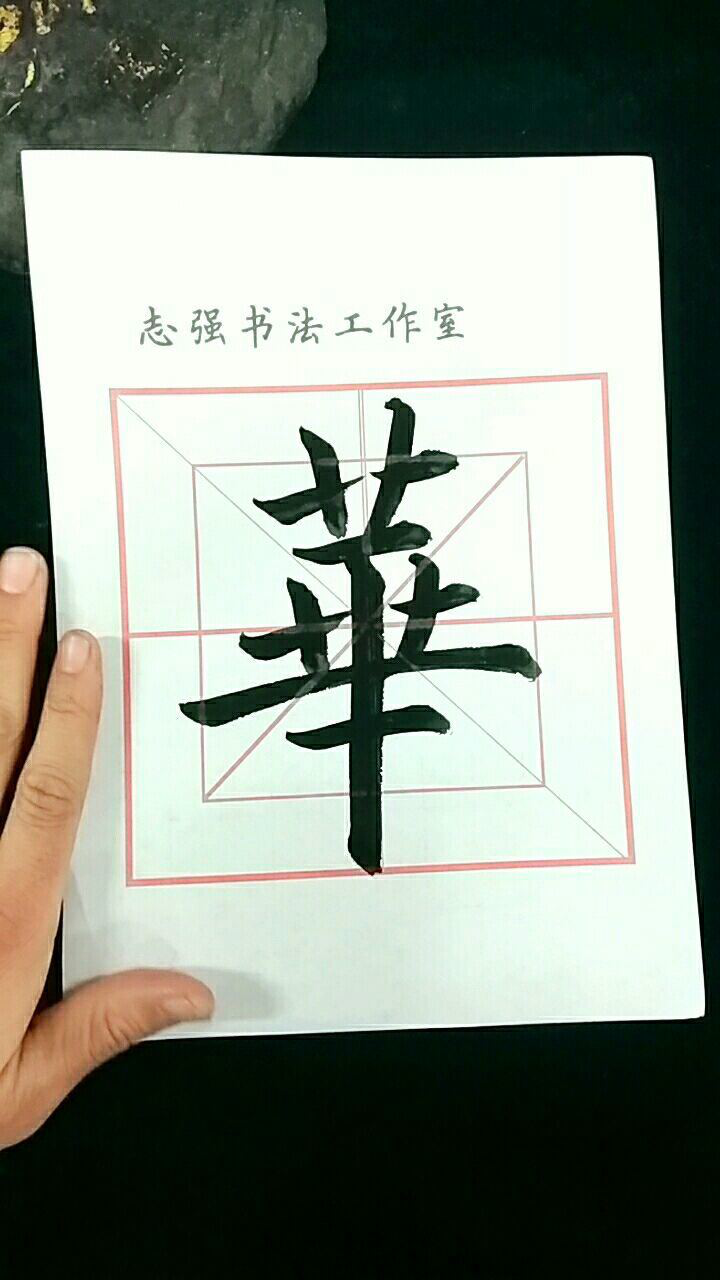 志强书法工作室
華